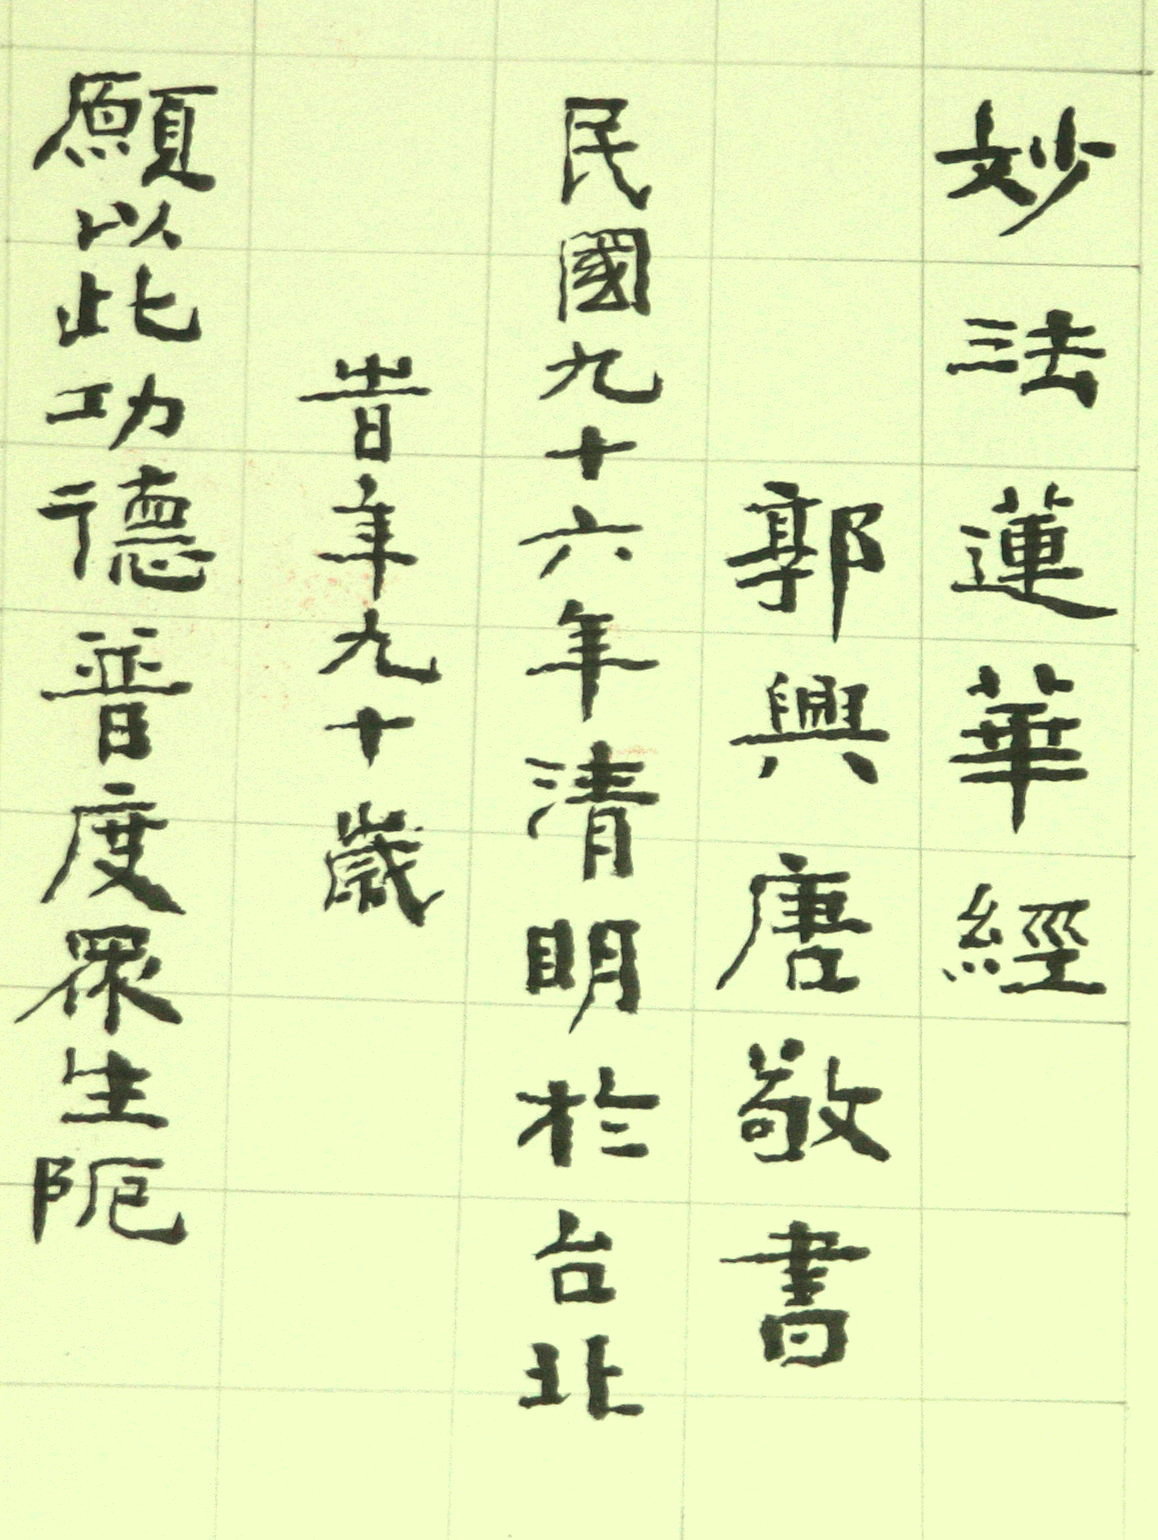 妙法蓮華經
郭興唐敬書
民國九十六年清明於台北
旹年九十歲
願以此功德普度眾生阨